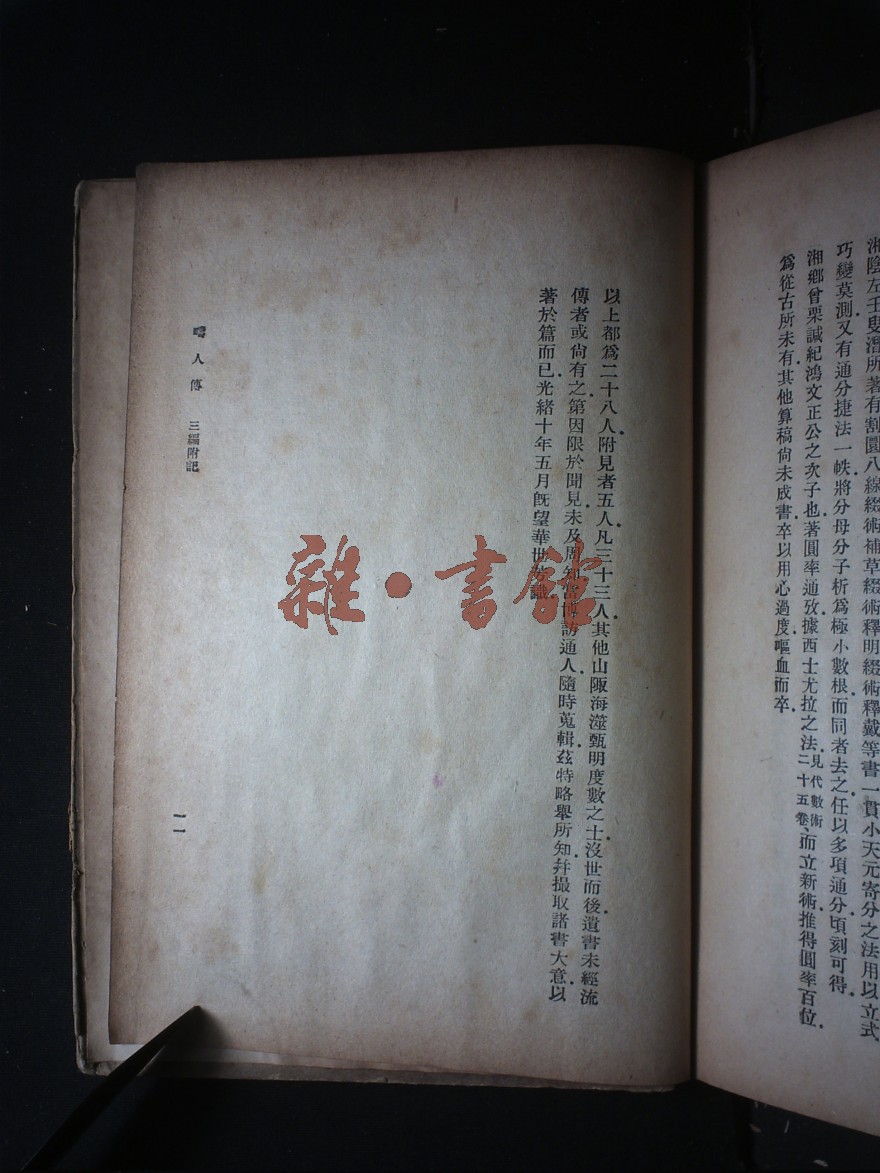 湘陰左壬叟潛所著有割圜八線綴術補草綴術釋明綴術釋戴等書一貫小天元寄分之法用以立式
巧變莫測又有通分捷法一帙將分母分子析爲極小數根而同者去之任以多項通分頃刻可得
湘鄉曾栗諴紀鴻文正公之次子也著圓率通攷據西士尤拉之法見代數術二十五卷而立新術推得圓率百位
爲從古所未有其他算稿尙未成書卒以用心過度嘔血而卒
以上都爲二十八人附見者五人凡三十三人其他山陬海澨甄明度數之士沒世而後遺書未經流
傳者或尙有之第因限於聞見未及周知當博訪通人隨時蒐輯茲特略舉所知幷撮取諸書大意以
著於篇而已光緒十年五月旣望華世芳識
疇人傳 三編附記
一一
雜·書館